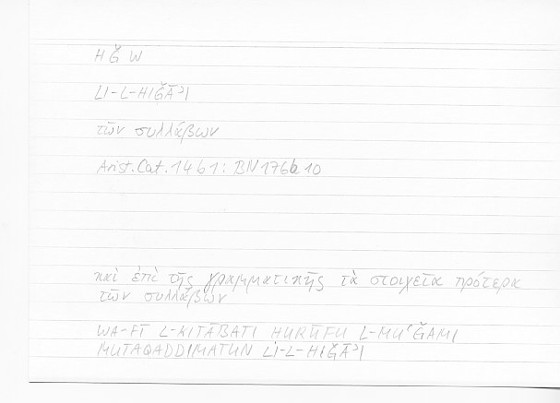 HǦW
LI-L-HIǦĀʾI
τῶν συλλάβων
Arist. Cat. 14b1: BN176b10
καὶ ἐπὶ τῆς γραμματικῆς τὰ στοιχεῖα πρότερα
τῶν συλλάβῶν
WA-FĪ L-KITĀBATI HURŪFU L-MUʿǦAMI
MUTAQADDIMATUN LI-L-HIǦĀʾI